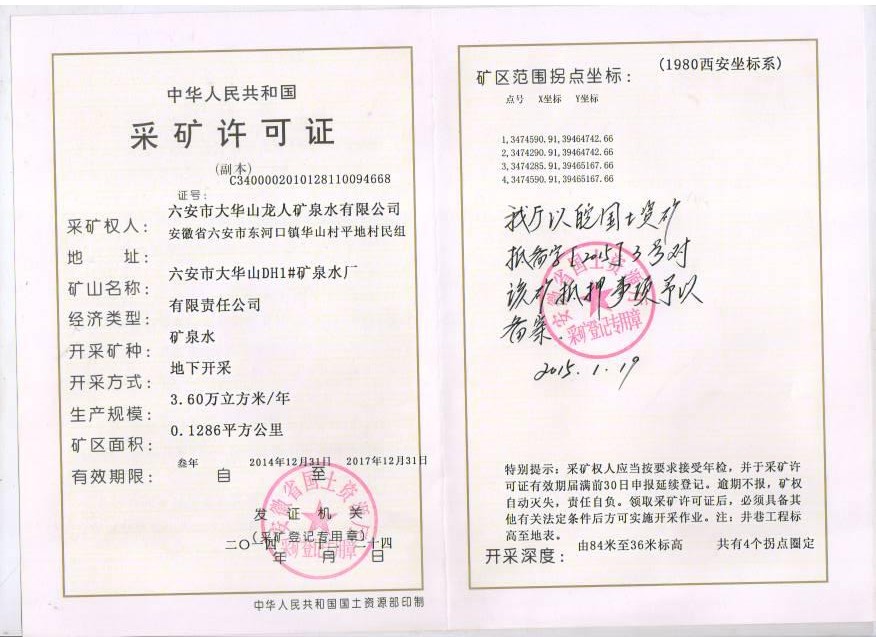 中华人民共和国
采矿许可证
(副本)
C3400002010128110094668
证号:
采矿权人: 六安市大华山龙人矿泉水有限公司
地 址: 安徽省六安市东河口镇华山村平地村民组
矿山名称: 六安市大华山DH1#矿泉水厂
经济类型: 有限责任公司
开采矿种: 矿泉水
开采方式: 地下开采
生产规模: 3.60万立方米/年
矿区面积: 0.1286平方公里
有效期限: 叁年 自 2014年12月31日 至 2017年12月31日
发证机关
(采矿登记专用章)
二〇一四 十二 二十四
年 月 日
中华人民共和国国土资源部印制
矿区范围拐点坐标: (1980西安坐标系)
点号 X坐标 Y坐标
1,3474590.91,39464742.66
2,3474290.91,39464742.66
3,3474285.91,39465167.66
4,3474590.91,39465167.66
我厅以皖国土资矿
抵备字[2015]3号对
该矿抵押事项予以
备案.
2015.1.19
安徽省国土资源厅
采矿登记专用章
特别提示: 采矿权人应当按要求接受年检, 并于采矿许
可证有效期届满前30日申报延续登记。逾期不报, 矿权
自动灭失, 责任自负。领取采矿许可证后, 必须具备其
他有关法定条件后方可实施开采作业。注: 井巷工程标
高至地表。
开采深度: 由84米至36米标高 共有4个拐点圈定